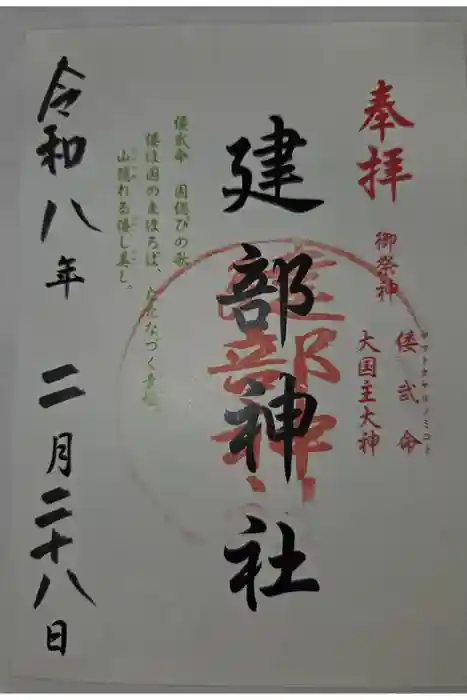 奉拝
御祭神
倭武命
ヤマトタケルノミコト
大国主大神
建部神社
倭武命 国偲びの歌
倭は国のまほろば、たたなづく青垣、
山隠れる倭し美し。
令和八年 二月二十八日